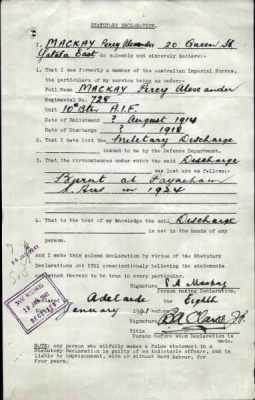 STATUTORY DECLARATION.
I, MACKAY Percy Alexander 20 Queen St
East do solemnly and sincerely declare:-
1. That I was formerly a member of the Australian Imperial Forces,
the particulars of my service being as under:-
Full Name MACKAY Percy Alexander
Regimental No. 728
Unit 10th Btn A.I.F.
Date of Enlistment ? August 1914
Date of Discharge ? 1918
2. That I have lost the Military Discharge
issued to me by the Defence Department.
3. That the circumstances under which the said Discharge
was lost are as follows:-
Burnt at Payneham
S. Aus in 1924
4. That to the best of my knowledge the said Discharge
is not in the hands of any
person.
And I make this solemn declaration by virtue of the Statutory
Declarations Act 1911 conscientiously believing the statements
contained therein to be true in every particular.
Signature P A Mackay
Person making Declaration.
Declared Adelaide the Eighth
January 1941
Signature Clarke J.P.
Title
Person before whom Declaration is
made.
NOTE: Any person who wilfully makes a false statement in a
Statutory Declaration is guilty of an indictable offence, and is
liable to imprisonment, with or without hard labour, for
four years.